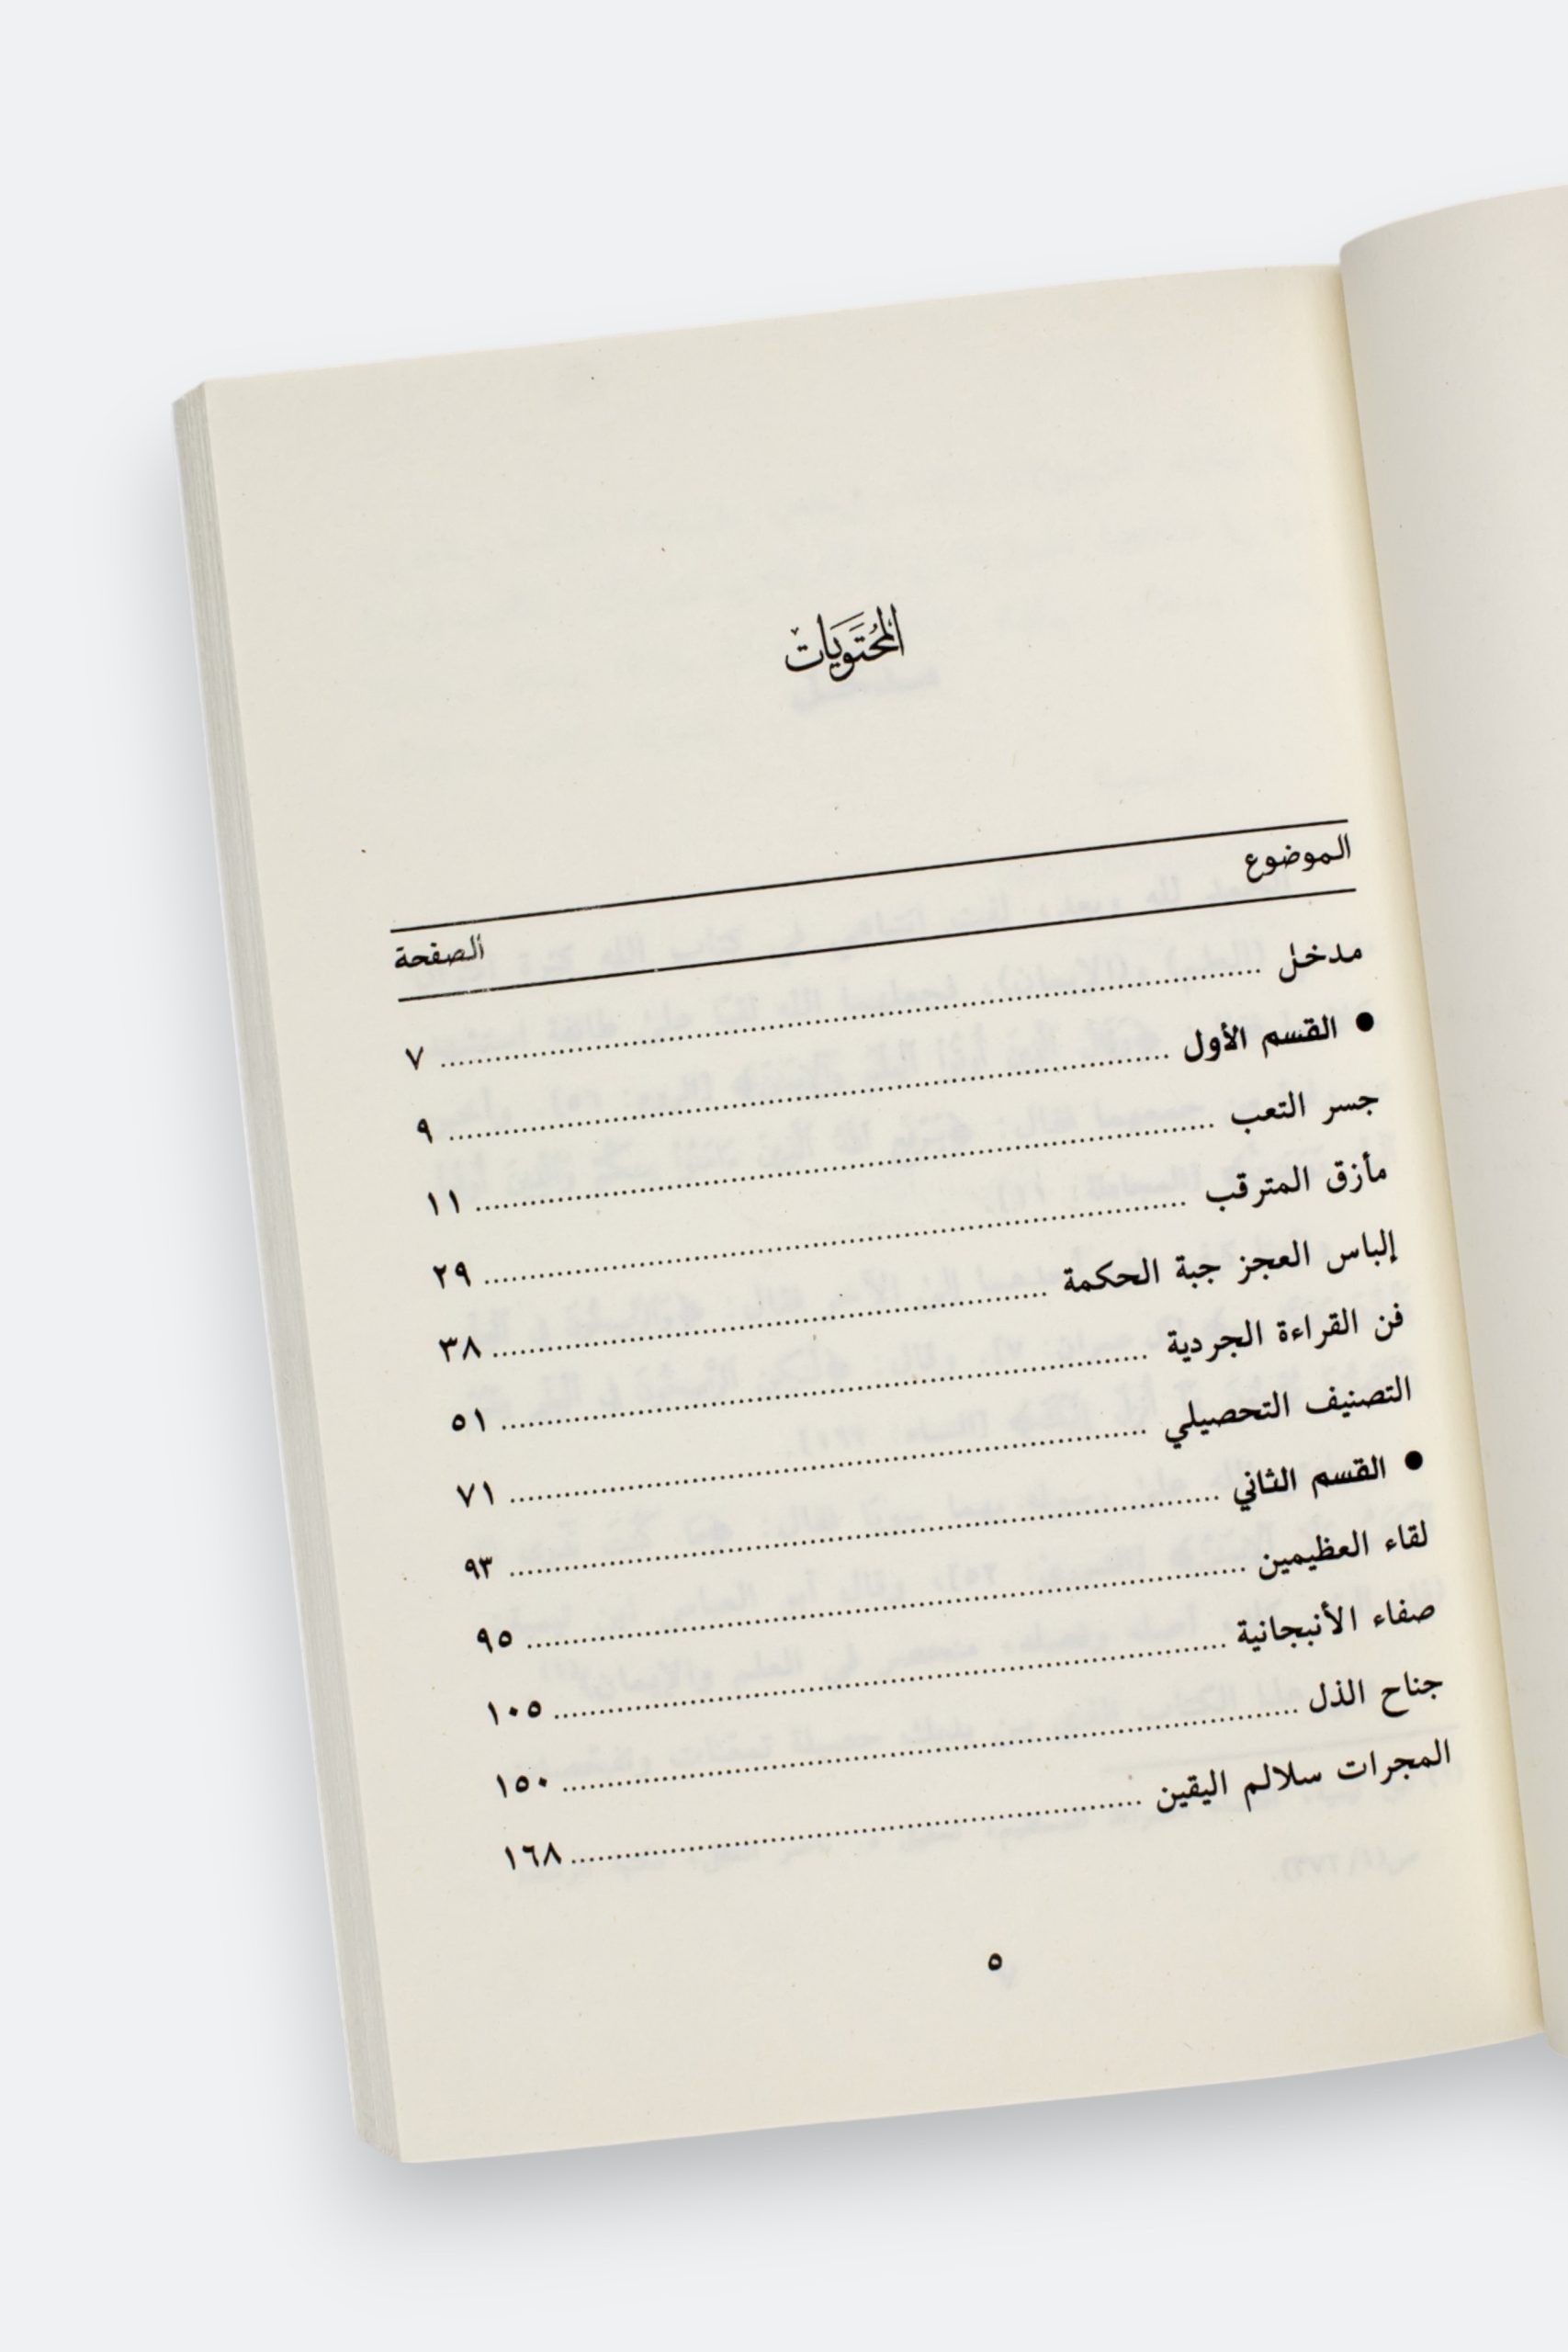 المُحْتَوَيَات
الموضوع الصفحة
مدخل ................ ٧
● القسم الأول ................ ٩
جسر التعب ................ ١١
مأزق المترقب ................ ٢٩
إلباس العجز جبة الحكمة ................ ٣٨
فن القراءة الجردية ................ ٥١
التصنيف التحصيلي ................ ٧١
● القسم الثاني ................ ٩٣
لقاء العظيمين ................ ٩٥
صفاء الأنبجانية ................ ١٠٥
جناح الذل ................ ١٥٠
المجرات سلالم اليقين ................ ١٦٨
٥